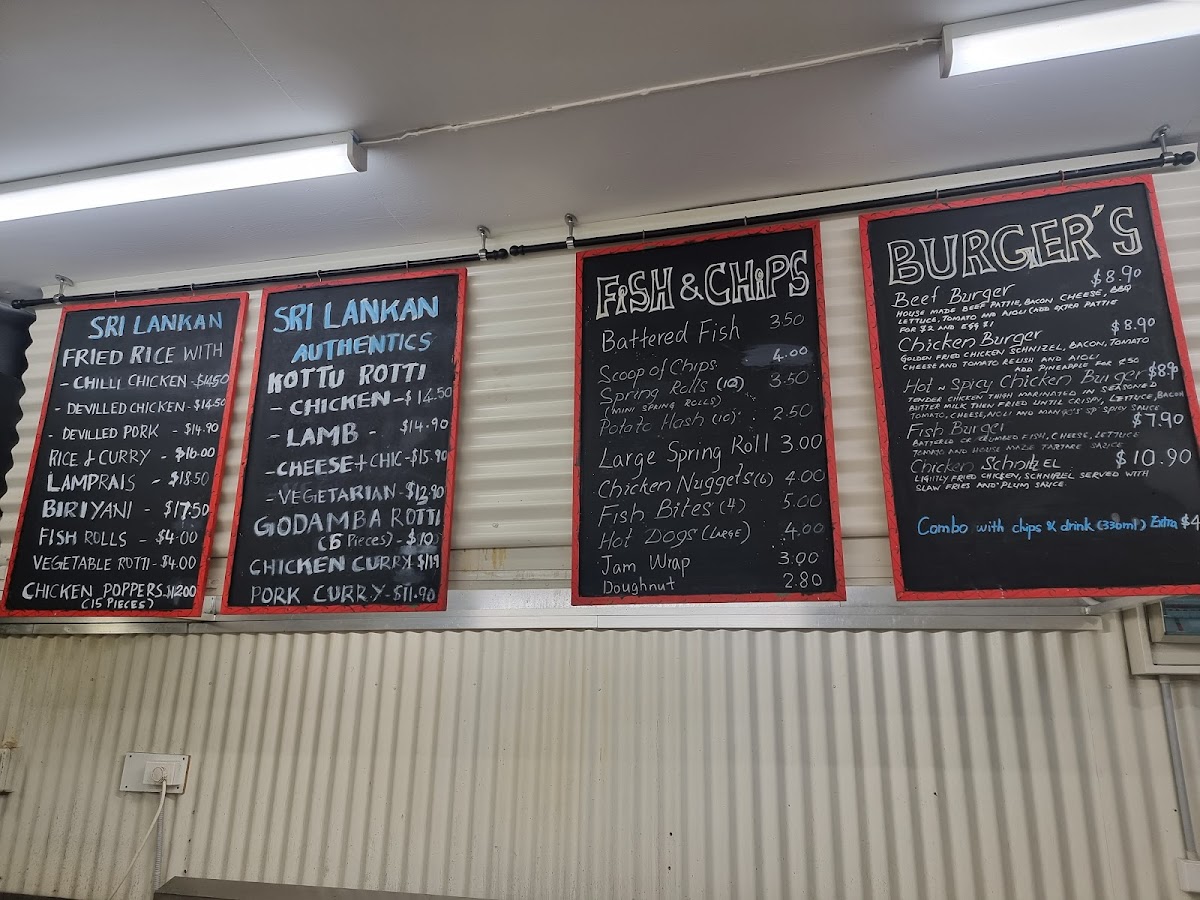 SRI LANKAN
FRIED RICE WITH
- CHILLI CHICKEN - $14.50
- DEVILLED CHICKEN - $14.50
- DEVILLED PORK - $14.90
RICE & CURRY - $16.00
LAMPRAIS - $18.50
BIRIYANI - $17.50
FISH ROLLS - $4.00
VEGETABLE ROTTI - $4.00
CHICKEN POPPERS $12.00
(15 PIECES)
SRI LANKAN
AUTHENTICS
KOTTU ROTTI
- CHICKEN - $14.50
- LAMB - $14.90
- CHEESE + CHIC - $15.90
- VEGETARIAN - $12.90
GODAMBA ROTTI
PIECES) - $10
CHICKEN CURRY
PORK CURRY - $11.90
FISH & CHIPS
Battered Fish 3.50
Scoop of Chips 4.00
Spring Rolls (10) 3.50
(MINI SPRING ROLLS)
Potato Hash (10) 2.50
Large Spring Roll 3.00
Chicken Nuggets (6) 4.00
Fish Bites (4) 5.00
Hot Dogs (LARGE) 4.00
Jam Wrap 3.00
Doughnut 2.80
BURGER'S
Beef Burger $8.90
HOUSE MADE BEEF PATTIE, BACON CHEESE, BBQ
LETTUCE, TOMATO AND AIOLI (ADD EXTRA PATTIE
FOR $2 AND EGG $1
Chicken Burger $8.90
GOLDEN FRIED CHICKEN SCHNIZEL, BACON, TOMATO
CHEESE AND TOMATO RELISH AND AIOLI
ADD PINEAPPLE FOR
Hot n Spicy Chicken Burger $8.90
TENDER CHICKEN THIGH MARINATED IN SEASONED
BUTTER MILK THEN FRIED UNTIL CRISPY, LETTUCE, BACON
TOMATO, CHEESE, AIOLI AND SPICY SAUCE
Fish Burger $7.90
BATTERED OR CRUMBED FISH, CHEESE, LETTUCE
TOMATO AND HOUSE MADE TARTARE SAUCE
Chicken $10.90
LIGHTLY FRIED CHICKEN, SCHNIZEL SERVED WITH
SLAW FRIES AND PLUM SAUCE
Combo with chips & drink (330ml) Extra $4